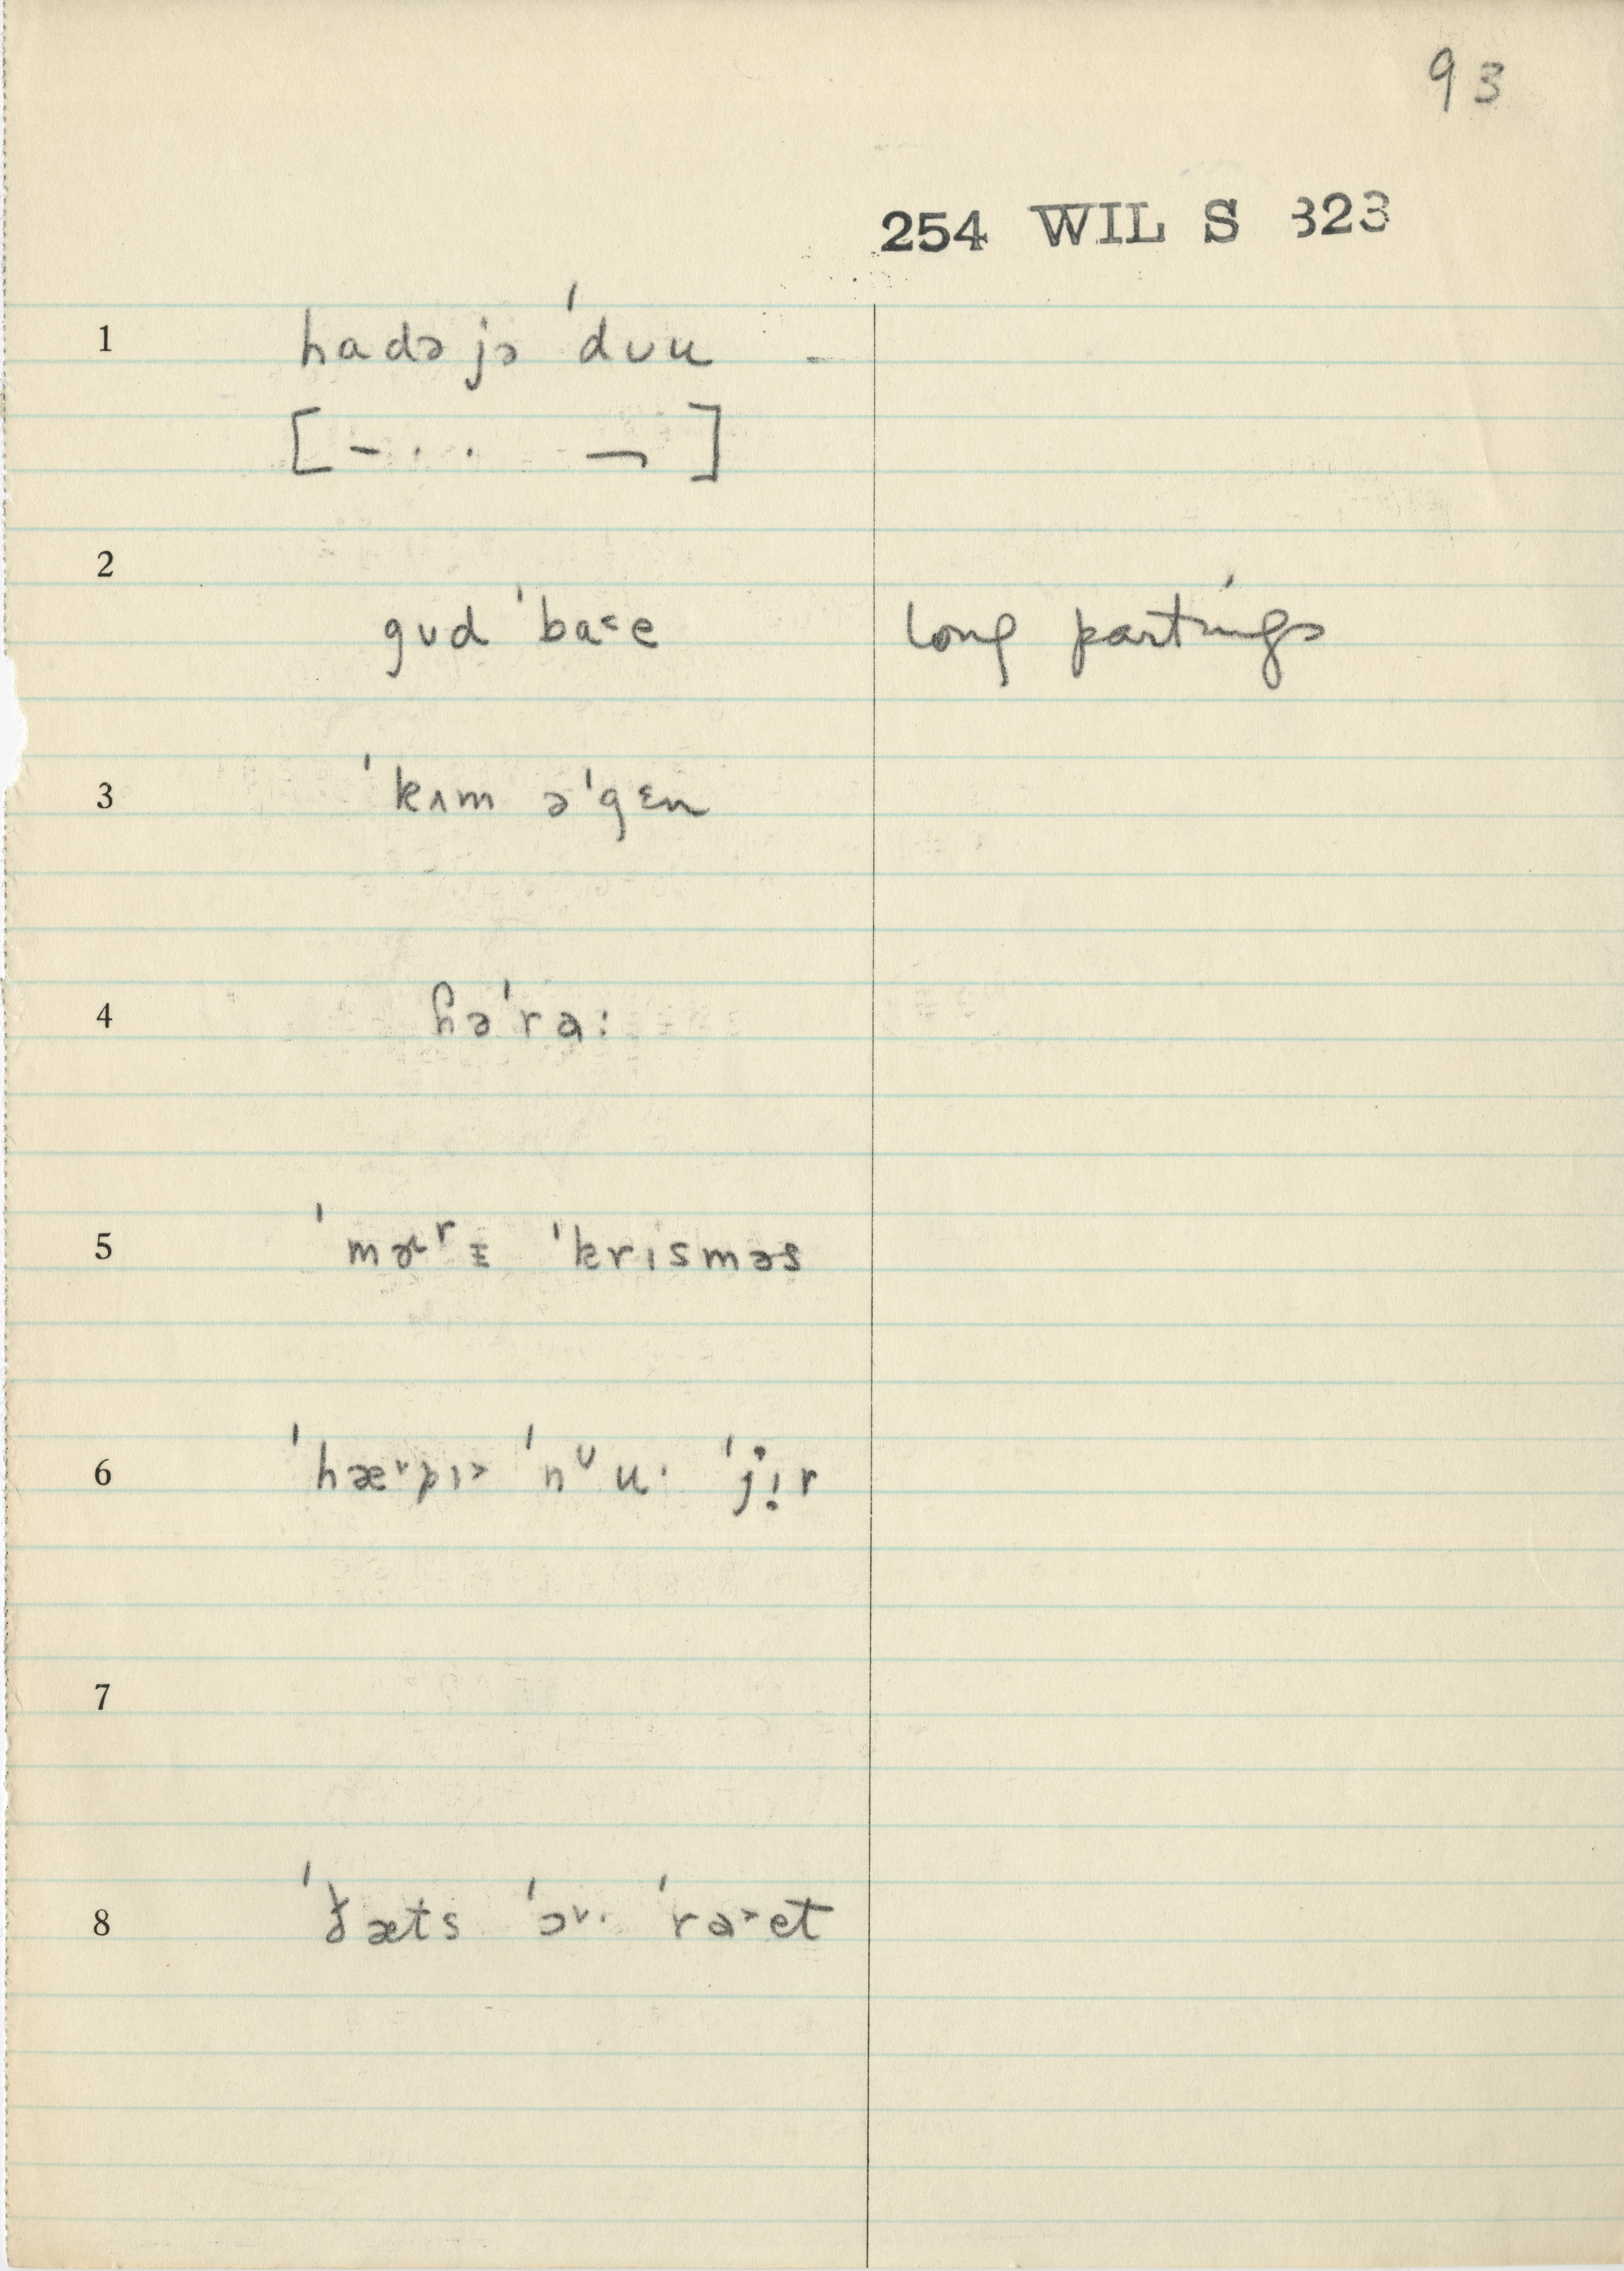 93
254 WIL S 323
1 hadə jə ˈdʊu -
[ – · · ¬ ]
2
gʊd ˈba˂e long partings
3 ˈkʌm əˈgɛn
4 ɦəˈra:
5 ˈmɚʳɪ ˈkrɪsməs
6 ˈhæ˅pɪ˃ ˈnᶸuˑ ˈjịr
7
8 ˈðæts ˈɔ˅ˑ ˈra˃et